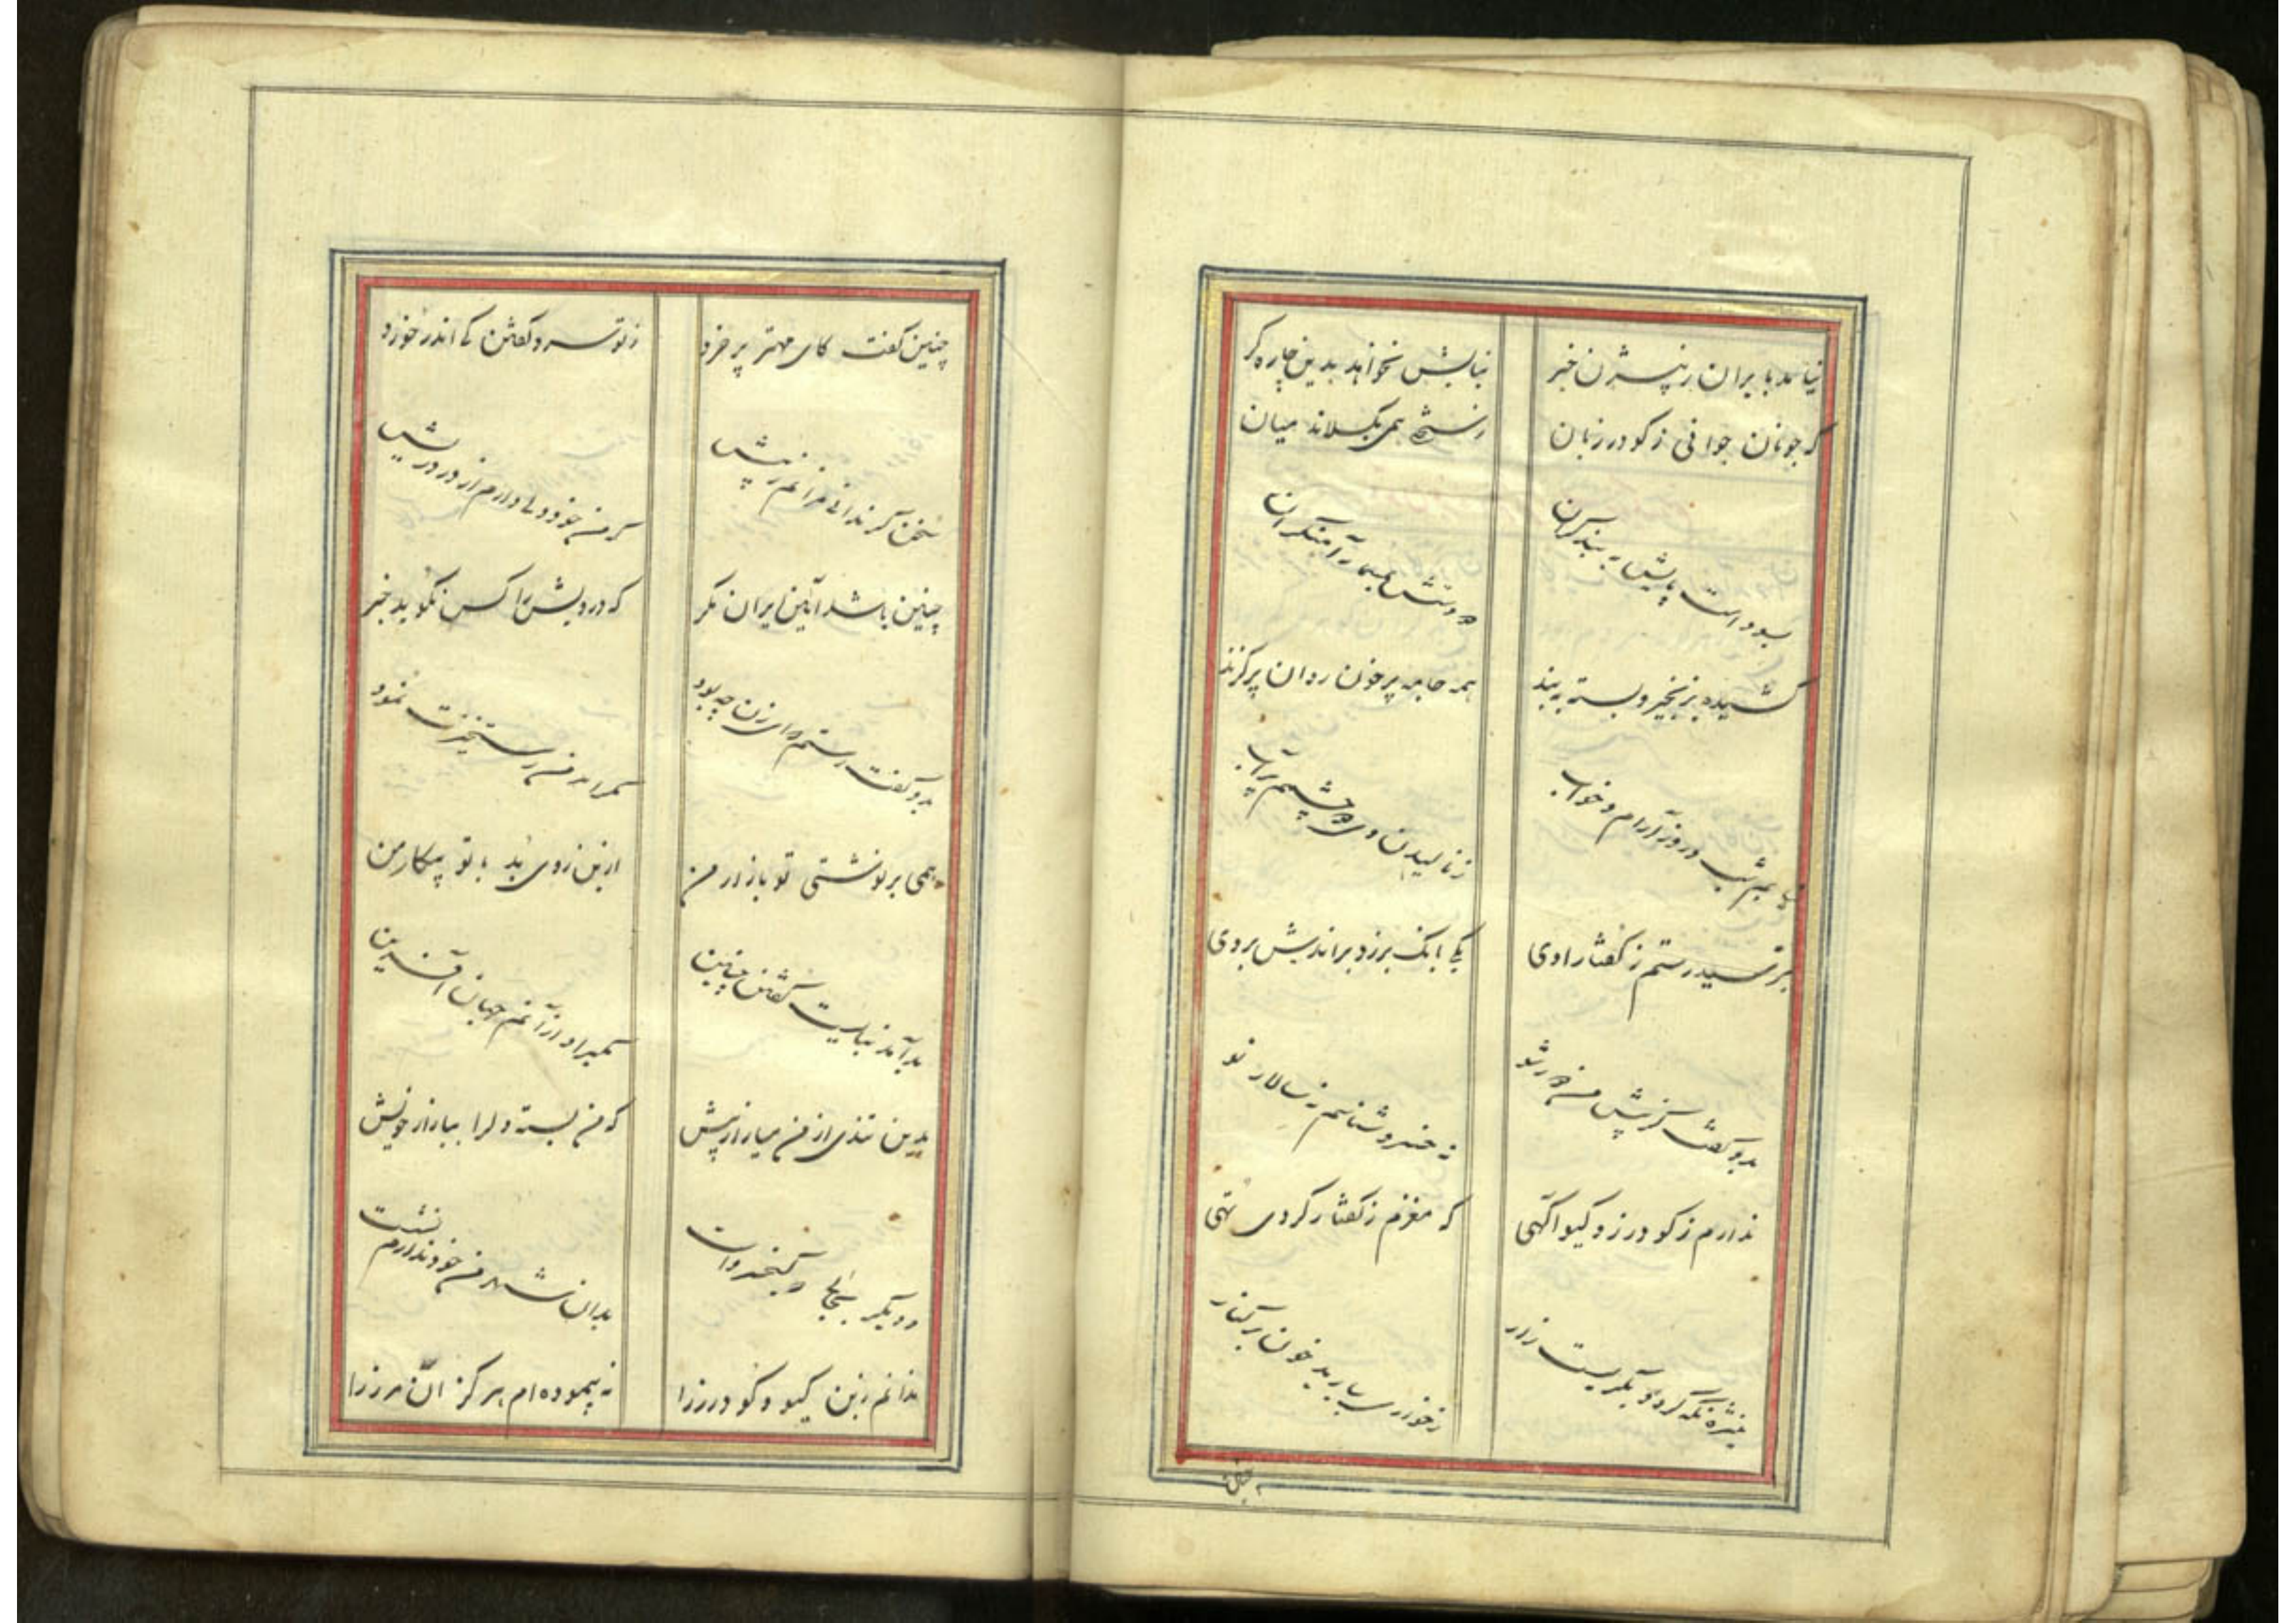 نیامد بایران ز بیژن خبر نیایش نخواهد بدین چاره‌گر
که چونان جوانی ز کودرزیان همی بگسلاند میان
بسوده است پایش به بند گران دو دستش بمسمار آهنگران
کشیده بزنجیر و بسته به بند همه جامه پر خون روان پر گزند
نیابم شب و روز آرام و خواب ز نالیدن وی دو چشمم پر آب
بترسید رستم ز گفتار اوی یکی بانک برزد براندش بروی
بدو گفت کز پیش من دور شو نه خسرو شناسم نه سالار نو
ندارم ز کودرز و کیو آگهی که مغزم ز گفتار کردی تهی
منیژه نگه کرد و بگریست زار ز خواری ببارید خون بر کنار
چنین
چنین گفت کای مهتر پر خرد ز تو سرد گفتن کی اندر خورد
سخن گر ندانی مرانم ز پیش که من خود دلی دارم از درد ریش
چنین باشد آیین ایران مگر که درویش را کس نگوید خبر
بدو گفت رستم که ای زن چه بود مگر اهرمن رستخیزت نمود
همی بر نوشتی تو بازار من ازین روی بد با تو پیکار من
بد آمد نبایست گفتن چنین مگیراد ازآنم جهان آفرین
بدین تندی از من میازار بیش که من بسته دل را ببازار خویش
و دیگر بجائی که کیخسرو است بدان شهر من خود ندارم نشست
ندانم زبن کیو و کودرز را نه پیموده‌ام هرگز آن مرز را